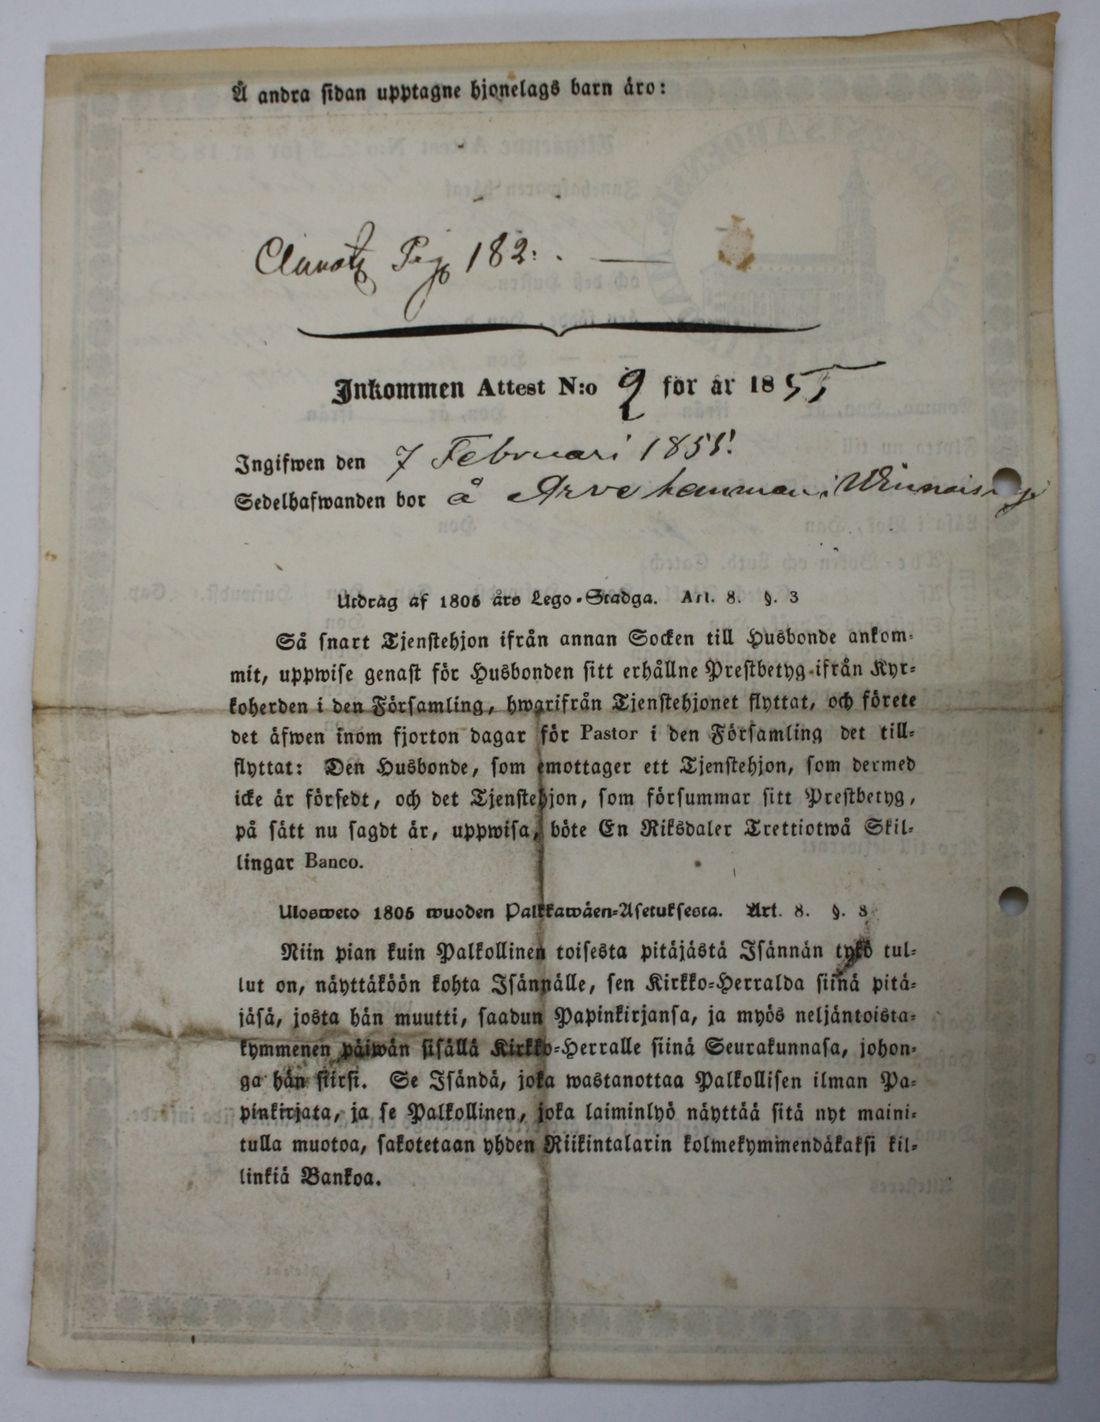 Å andra sidan upptagne hjonelags barn äro:
Pag 182.
Inkommen Attest N:o 2 för år 1855
Ingifwen den 7 Februari 1855.
Sedelhafwanden bor å Arve hemman i
Utdrag af 1805 års Lego-Stadga. Art. 8. §. 3
Så snart Tjenstehjon ifrån annan Socken till Husbonde ankom-
mit, uppwise genast för Husbonden sitt erhållne Prestbetyg ifrån Kyr-
koherden i den Församling, hwarifrån Tjenstehjonet flyttat, och förete
det äfwen inom fjorton dagar för Pastor i den Församling det till-
flyttat: Den Husbonde, som emottager ett Tjenstehjon, som dermed
icke är försedt, och det Tjenstehjon, som försummar sitt Prestbetyg,
på sätt nu sagdt är, uppwisa, böte En Riksdaler Trettiotwå Skil-
lingar Banco.
Ulosweto 1805 wuoden Palkkawäen-Asetuksesta. Art. 8. §. 3
Niin pian kuin Palkollinen toisesta pitäjästä Isännän tykö tul-
lut on, näyttäköön kohta Isännälle, sen Kirkko-Herralda siinä pitä-
jäsä, josta hän muutti, saadun Papinkirjansa, ja myös neljäntoista-
kymmenen päiwän sisällä Kirkko-Herralle siinä Seurakunnasa, johon-
ga hän siirsi. Se Isändä, joka wastanottaa Palkollisen ilman Pa-
pinkirjata, ja se Palkollinen, joka laiminlyö näyttää sitä nyt maini-
tulla muotoa, sakotetaan yhden Riikintalarin kolmekymmendäkaksi kil-
linkiä Bankoa.